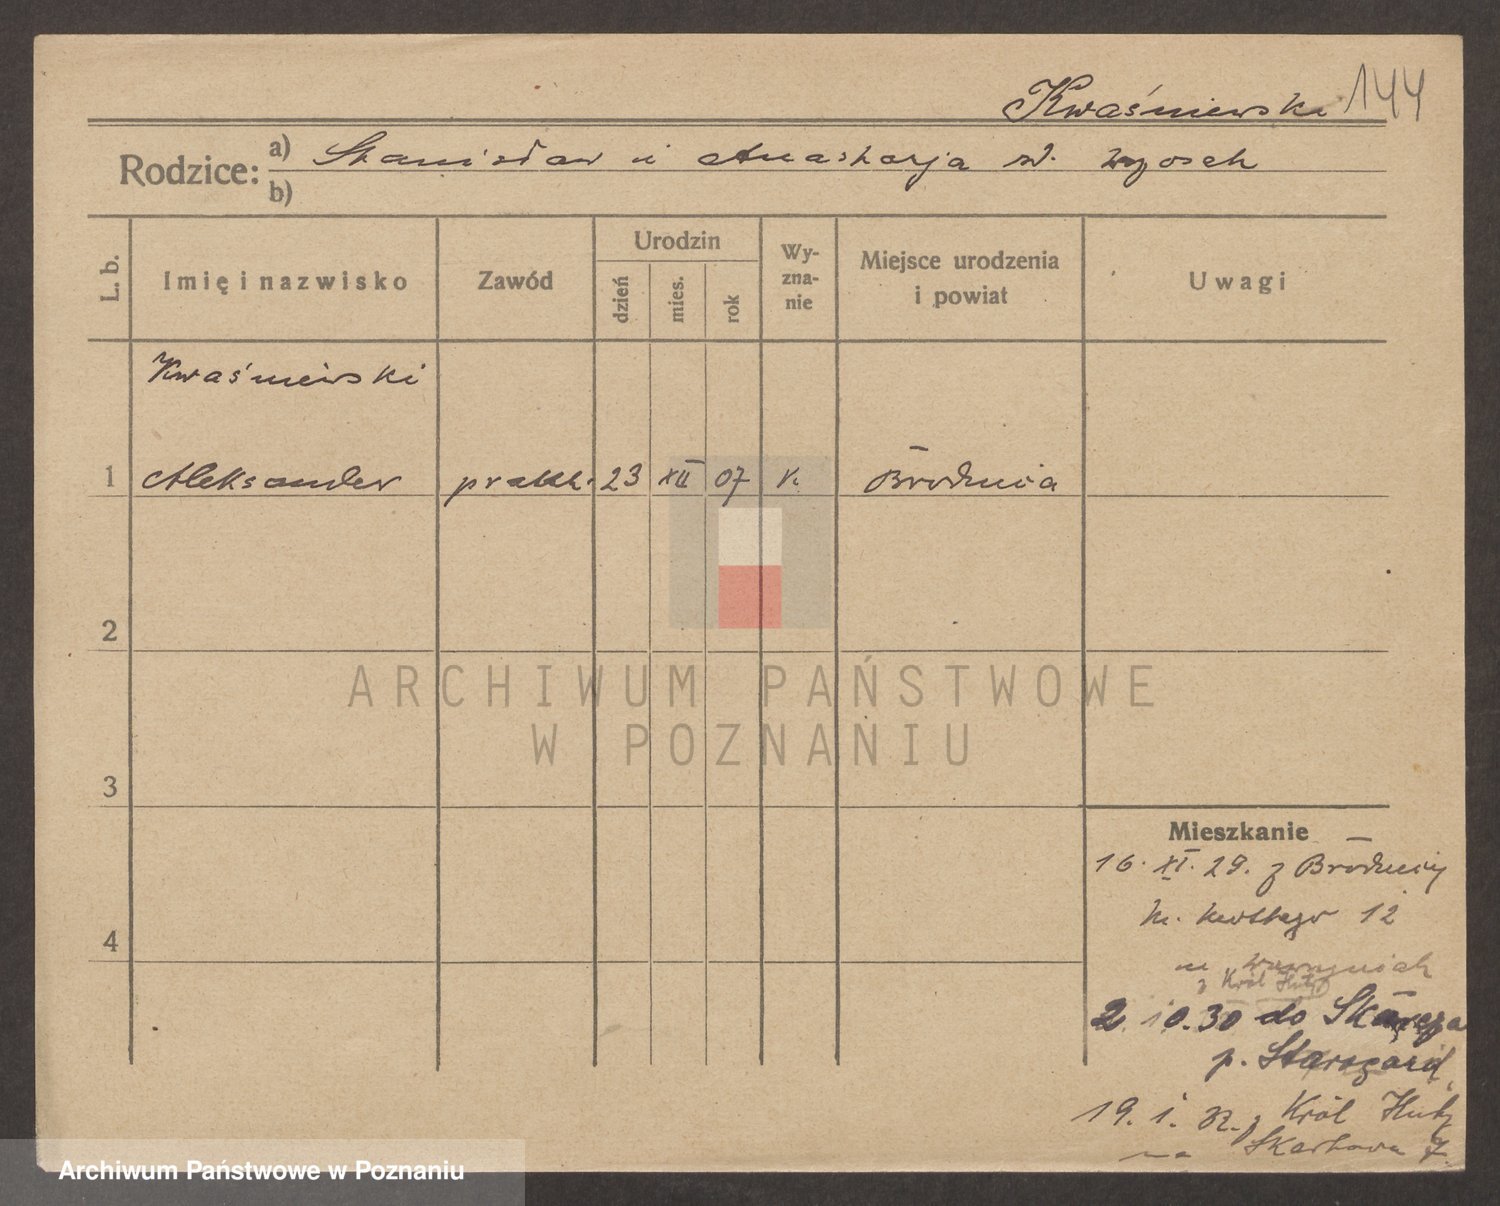 Kwaśniewski 144
Rodzice: a) Stanisław i Anastazja zd. Wrzosek
b)
L. b.
Imię i nazwisko
Zawód
Urodzin
dzień
mies.
rok
Wy-
zna-
nie
Miejsce urodzenia
i powiat
Uwagi
Kwaśniewski
1 Aleksander prakt. 23 XII 07 k. Brodnica
2
3
4
Mieszkanie
16. XI. 29. z Brodnicy
12
z Król Huty
2. 10.30 do
p. Starogard
19. I. 32. z Król Huty
na Skarbowa 7.
ARCHIWUM PAŃSTWOWE
W POZNANIU
Archiwum Państwowe w Poznaniu